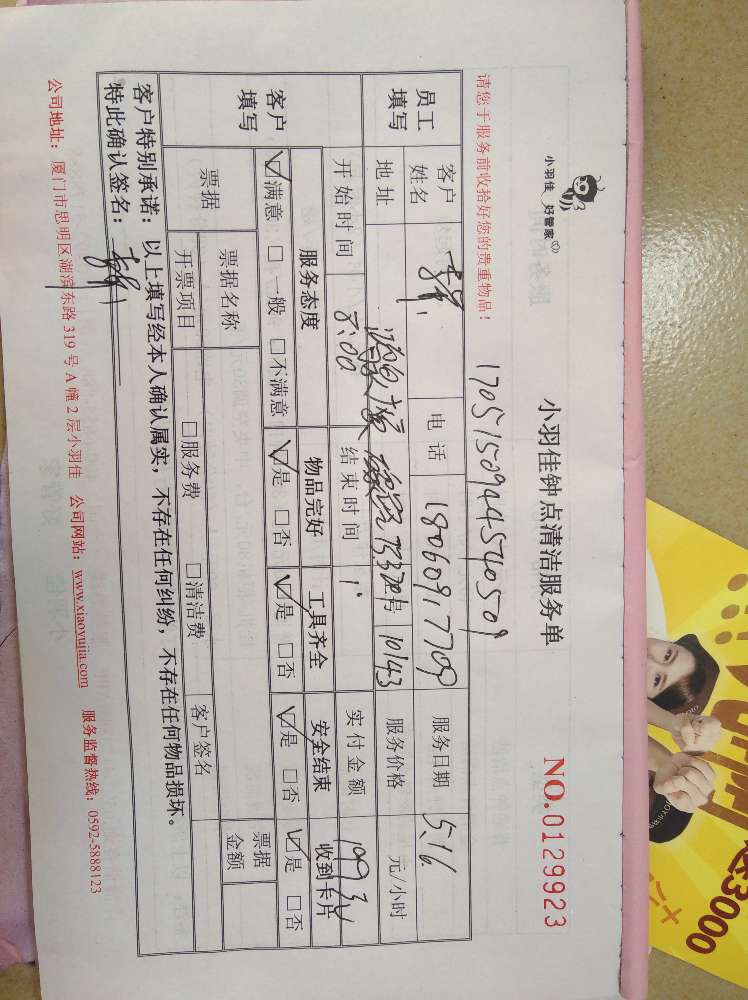 小羽佳 好管家
小羽佳钟点清洁服务单
NO.0129923
170515094454050９
请您于服务前收拾好您的贵重物品!
员工填写
客户姓名
电话 18060917709
服务日期 5.16.
地址
号 10143
服务价格 元/小时
开始时间 8:00
结束时间
实付金额
客户填写
服务态度 物品完好 工具齐全 安全结束 收到卡片
☑满意 □一般 □不满意 ☑是 □否 ☑是 □否 ☑是 □否 ☑是 □否
票据
票据名称
票据金额
开票项目 □服务费 □清洁费 客户签名
客户特别承诺:以上填写经本人确认属实,不存在任何纠纷,不存在任何物品损坏。
特此确认签名:
公司地址:厦门市思明区湖滨东路319号A幢2层小羽佳 公司网站:www.xiaoyujia.com 服务监督热线:0592-5888123
3000